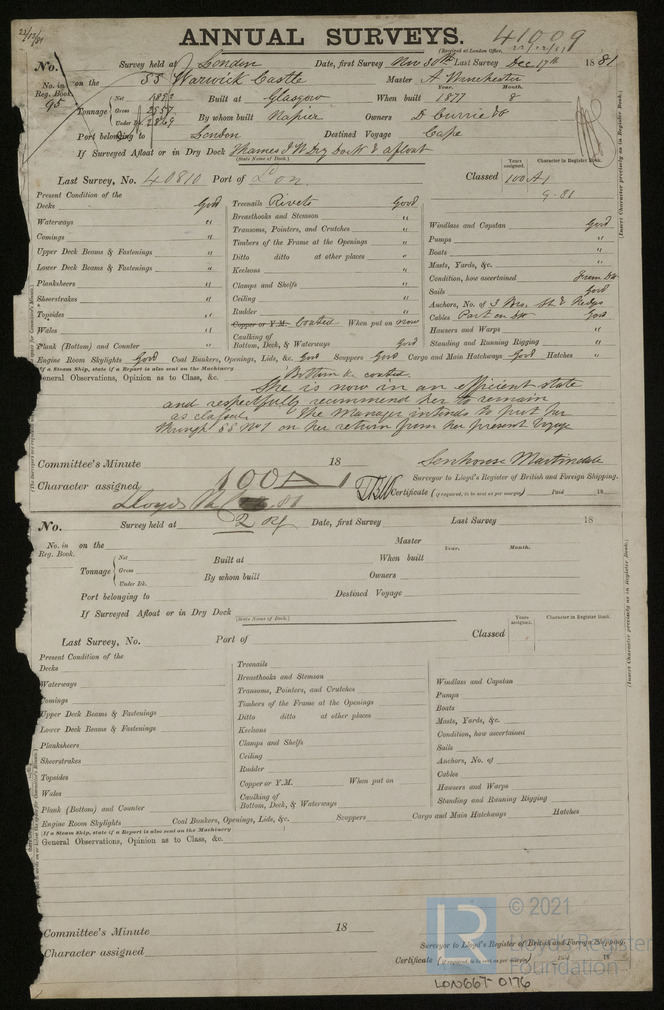 22/12/81
ANNUAL SURVEYS. 41009
(Received at London Office, 22/12/81
No. Survey held at London Date, first Survey Nov 30th Last Survey Dec 17th 1881
No. in Reg. Book. 95 on the SS Warwick Castle Master A Winchester
Year. Month.
Tonnage Net 1892 Built at Glasgow When built 1877 8
Gross 2957
Under Dk. 2869 By whom built Napier Owners D Currie & Co
Port belonging to London Destined Voyage Cape
If Surveyed Afloat or in Dry Dock Thames I W Dry Dock & afloat
(State Name of Dock.)
Last Survey, No. 40810 Port of Lon. Classed Years assigned. 100A1 Character in Register Book.
9-81
(Insert Character precisely as in Register Book.)
Present Condition of the
Decks Good
Waterways "
Comings "
Upper Deck Beams & Fastenings "
Lower Deck Beams & Fastenings "
Planksheers "
Sheerstrakes "
Topsides "
Wales "
Plank (Bottom) and Counter "
Treenails Rivets Good
Breasthooks and Stemson "
Transoms, Pointers, and Crutches "
Timbers of the Frame at the Openings "
Ditto ditto at other places "
Keelsons "
Clamps and Shelfs "
Ceiling "
Rudder "
Copper or Y.M. Coated When put on now
Caulking of Bottom, Deck, & Waterways Good
Windlass and Capstan Good
Pumps "
Boats "
Masts, Yards, &c. "
Condition, how ascertained From Dk
Sails Good
Anchors, No. of 3 Brs. St & Kedges
Cables Part on dk Good
Hawsers and Warps "
Standing and Running Rigging "
Engine Room Skylights Good Coal Bunkers, Openings, Lids, &c. Good Scuppers Good Cargo and Main Hatchways Good Hatches "
(If a Steam Ship, state if a Report is also sent on the Machinery
General Observations, Opinion as to Class, &c. Bottom &c coated.
She is now in an efficient state
and respectfully recommend her to remain
as classed. The Manager intends to put her
through SS No 1 on her return from her present voyage
Committee's Minute 18 Senhouse Martindale
Surveyor to Lloyd's Register of British and Foreign Shipping.
Character assigned 100A1
Certificate (if required, to be sent as per margin) Paid 18
No. Survey held at Date, first Survey Last Survey 18
No. in Reg. Book. on the Master
Year. Month.
Tonnage Net Built at When built
Gross
Under Dk. By whom built Owners
Port belonging to Destined Voyage
If Surveyed Afloat or in Dry Dock
(State Name of Dock.)
Last Survey, No. Port of Classed Years assigned. Character in Register Book.
(Insert Character precisely as in Register Book.)
Present Condition of the
Decks
Waterways
Comings
Upper Deck Beams & Fastenings
Lower Deck Beams & Fastenings
Planksheers
Sheerstrakes
Topsides
Wales
Plank (Bottom) and Counter
Treenails
Breasthooks and Stemson
Transoms, Pointers, and Crutches
Timbers of the Frame at the Openings
Ditto ditto at other places
Keelsons
Clamps and Shelfs
Ceiling
Rudder
Copper or Y.M. When put on
Caulking of Bottom, Deck, & Waterways
Windlass and Capstan
Pumps
Boats
Masts, Yards, &c.
Condition, how ascertained
Sails
Anchors, No. of
Cables
Hawsers and Warps
Standing and Running Rigging
Engine Room Skylights Coal Bunkers, Openings, Lids, &c. Scuppers Cargo and Main Hatchways Hatches
(If a Steam Ship, state if a Report is also sent on the Machinery
General Observations, Opinion as to Class, &c.
Committee's Minute 18
Surveyor to Lloyd's Register of British and Foreign Shipping.
Character assigned
Certificate (if required, to be sent as per margin) Paid 18
© 2021
Lloyd's Register
Foundation
LR
LON667-0176